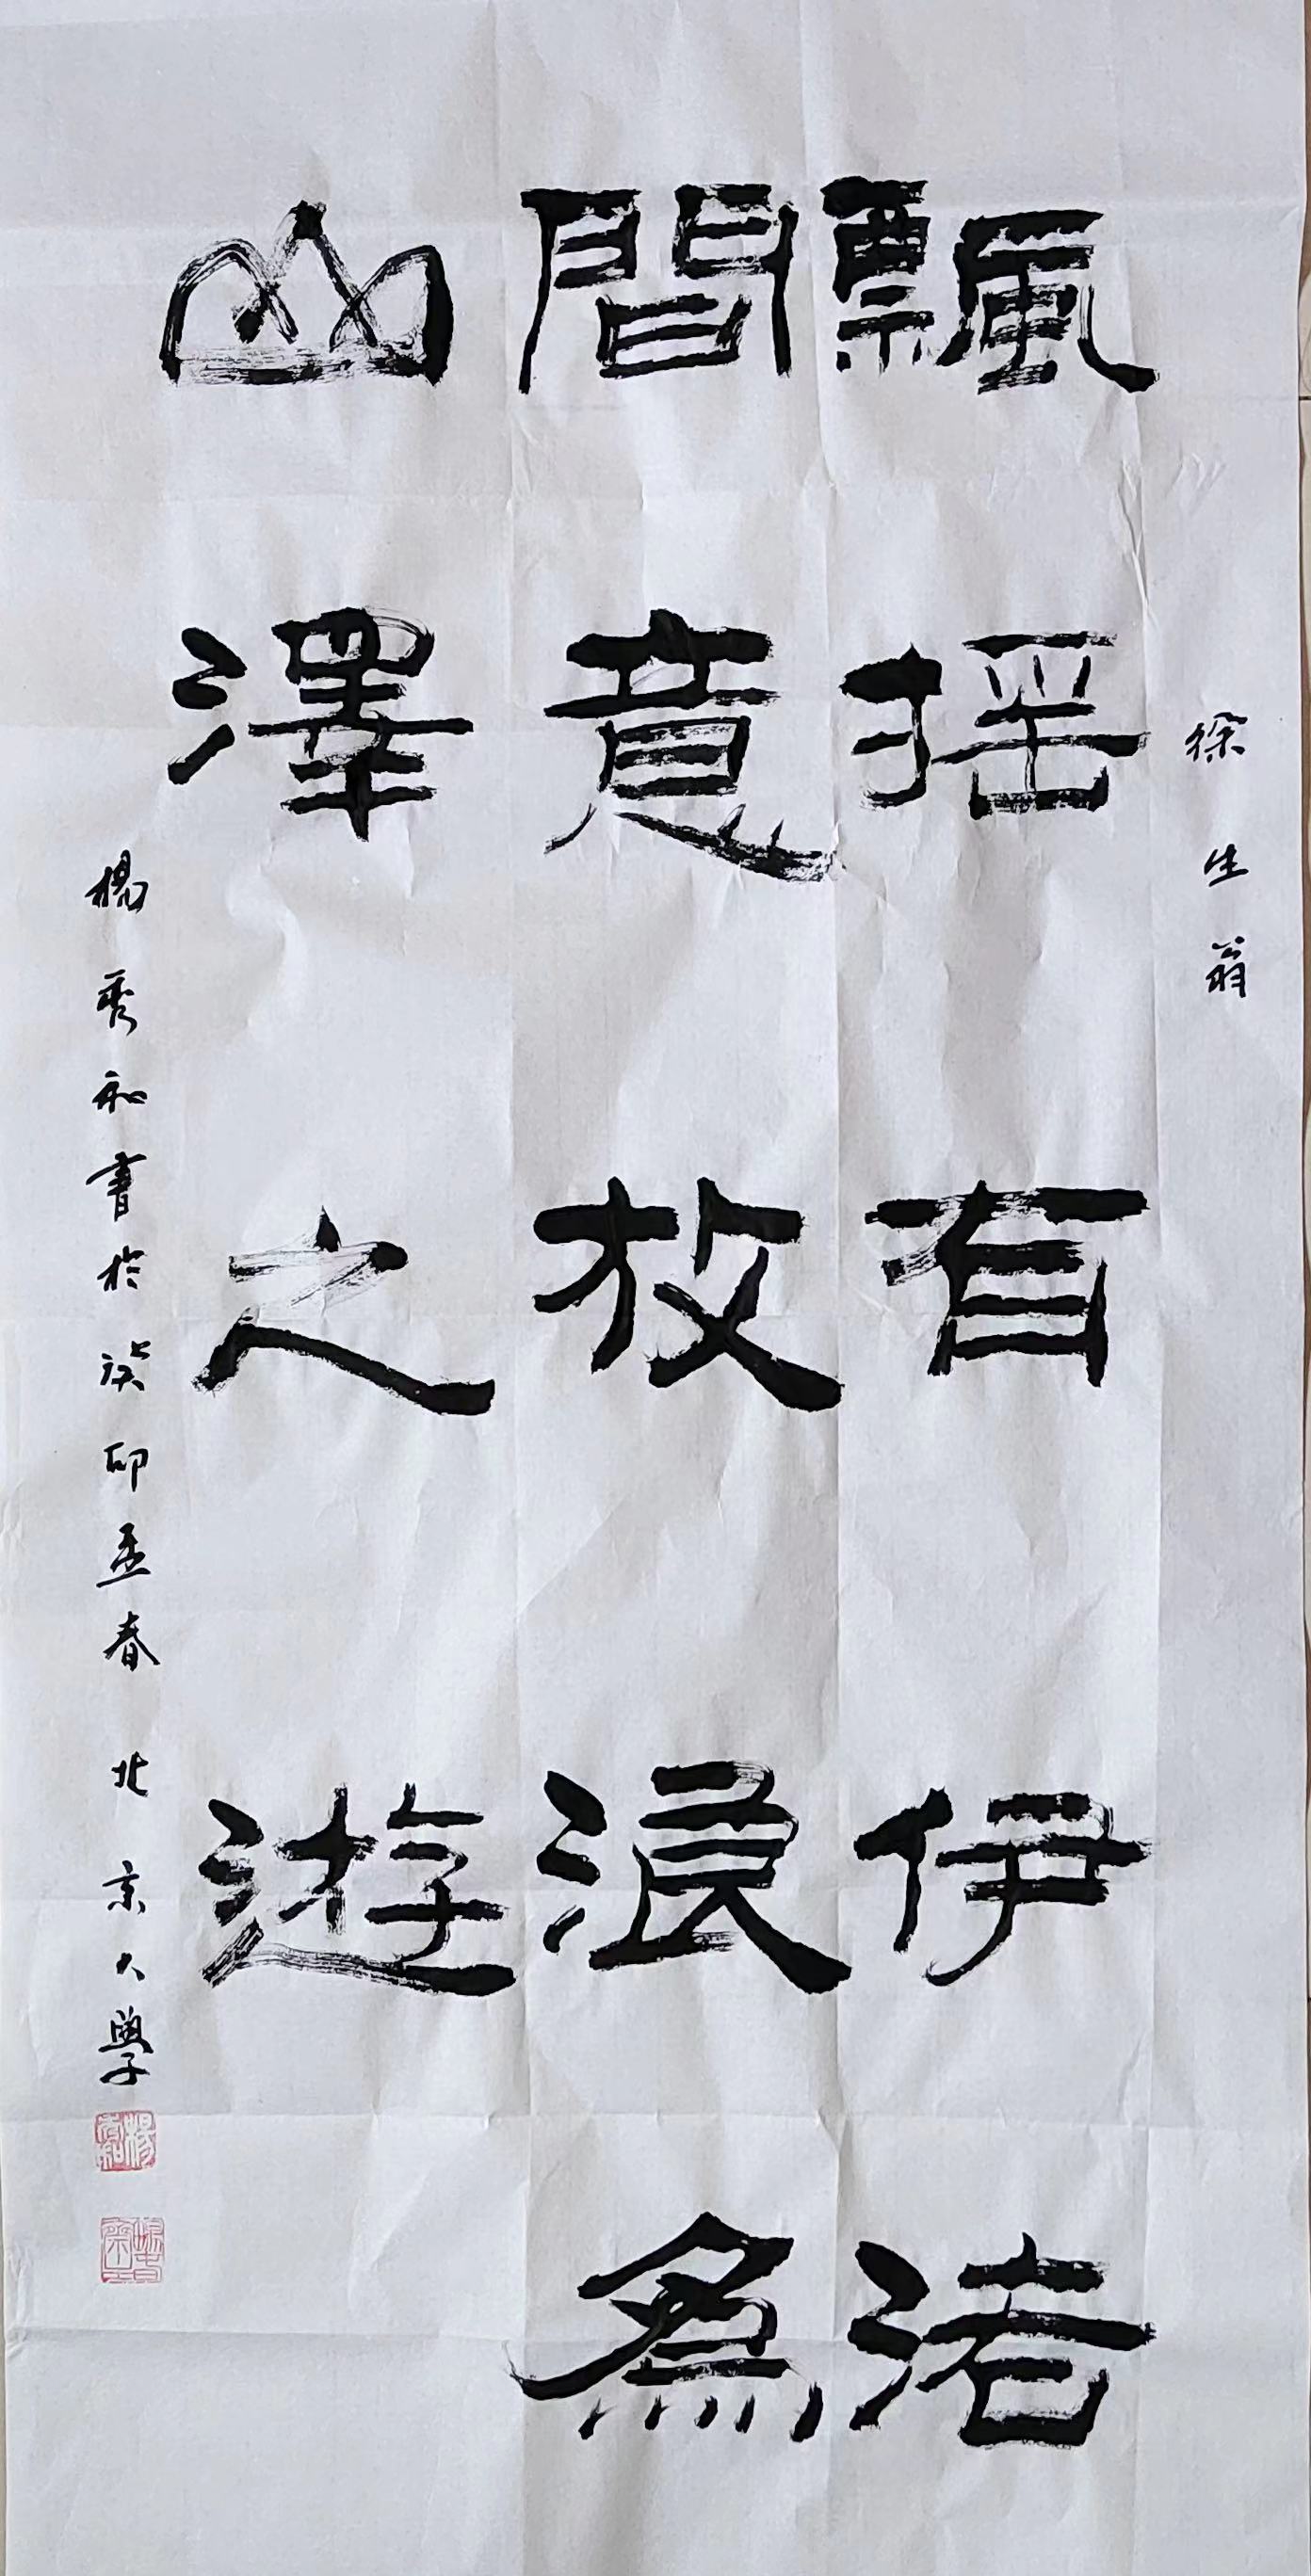 徐生翁
飄搖有伊渚
間意放浪爲
山澤之遊
楊秀和書於癸卯孟春 北京大學